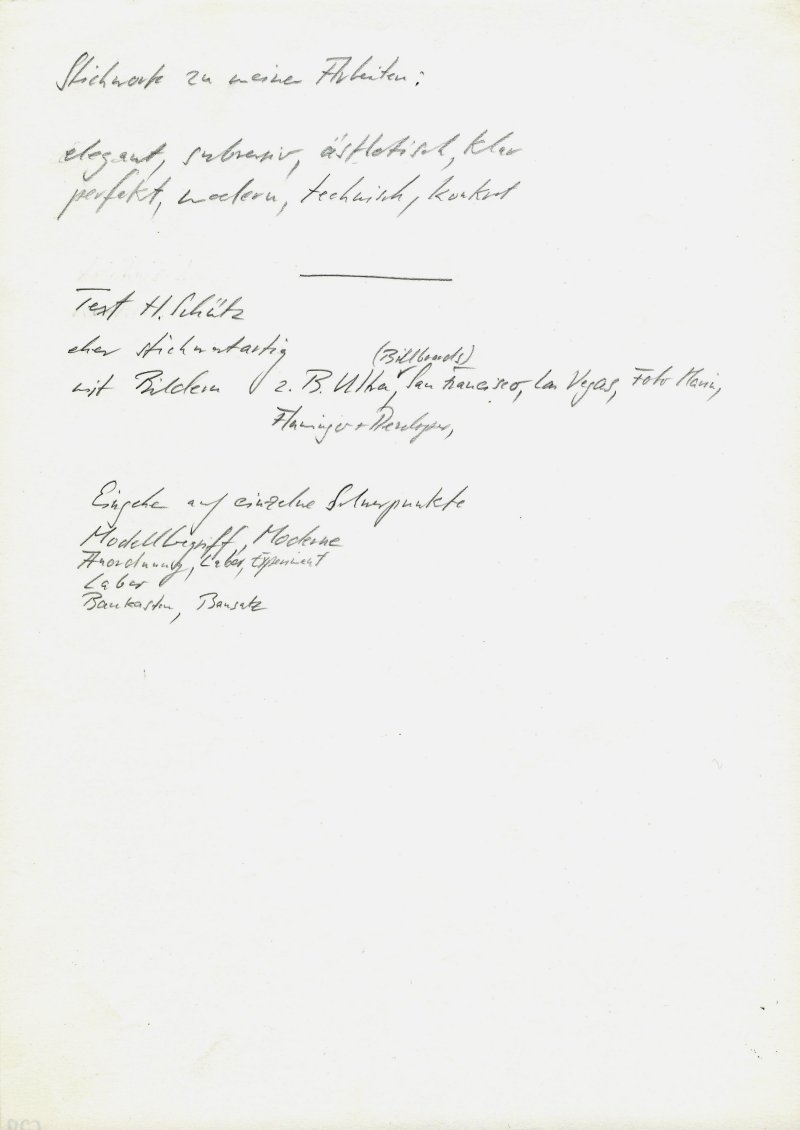 Stichworte zu meinen Arbeiten:
elegant, subversiv, ästhetisch, klar
perfekt, modern, technisch, konkret
Text H. Schütz
eher stichwortartig
(Billboards)
mit Bildern z. B. Ulha, San Francisco, Las Vegas, Foto Mario,
Flamingo +
Eingehen auf einzelne Schwerpunkte
Modellbegriff, Moderne
Anordnung, Labor, Experiment
Labor
Baukasten, Bausatz